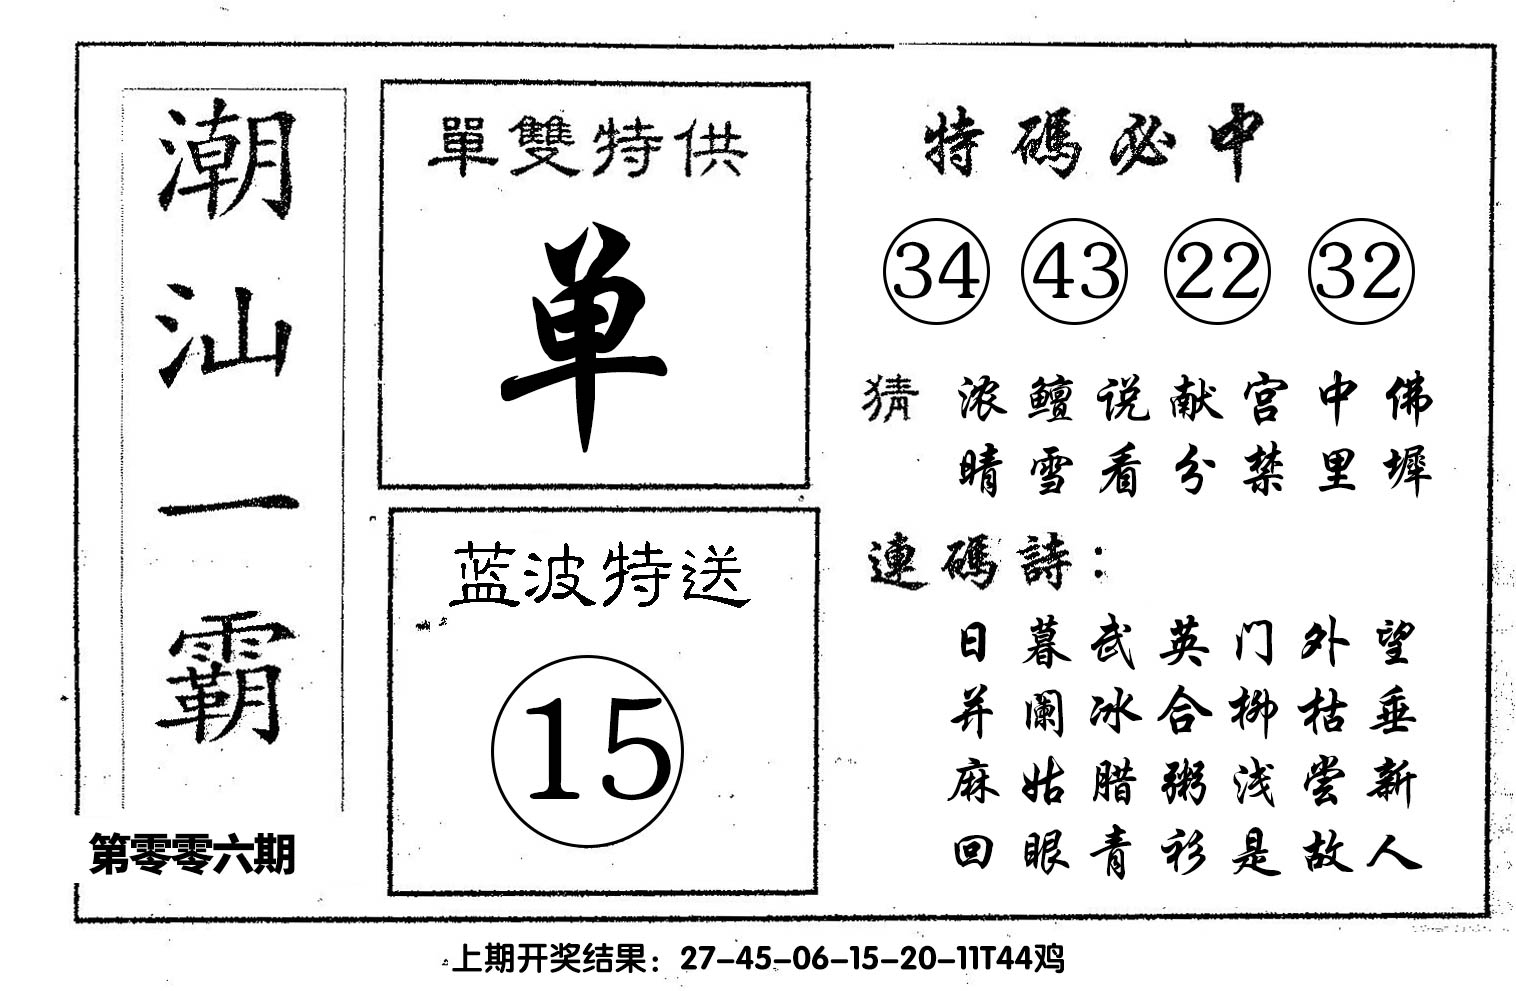 潮汕一霸
第零零六期
單雙特供
单
蓝波特送
15
特碼必中
34 43 22 32
猜 浓鳣说献宫中佛
晴雪看分禁里墀
連碼詩：
日暮武英门外望
并阑冰合柳枯垂
麻姑腊粥浅尝新
回眼青衫是故人
上期开奖结果：27-45-06-15-20-11T44鸡